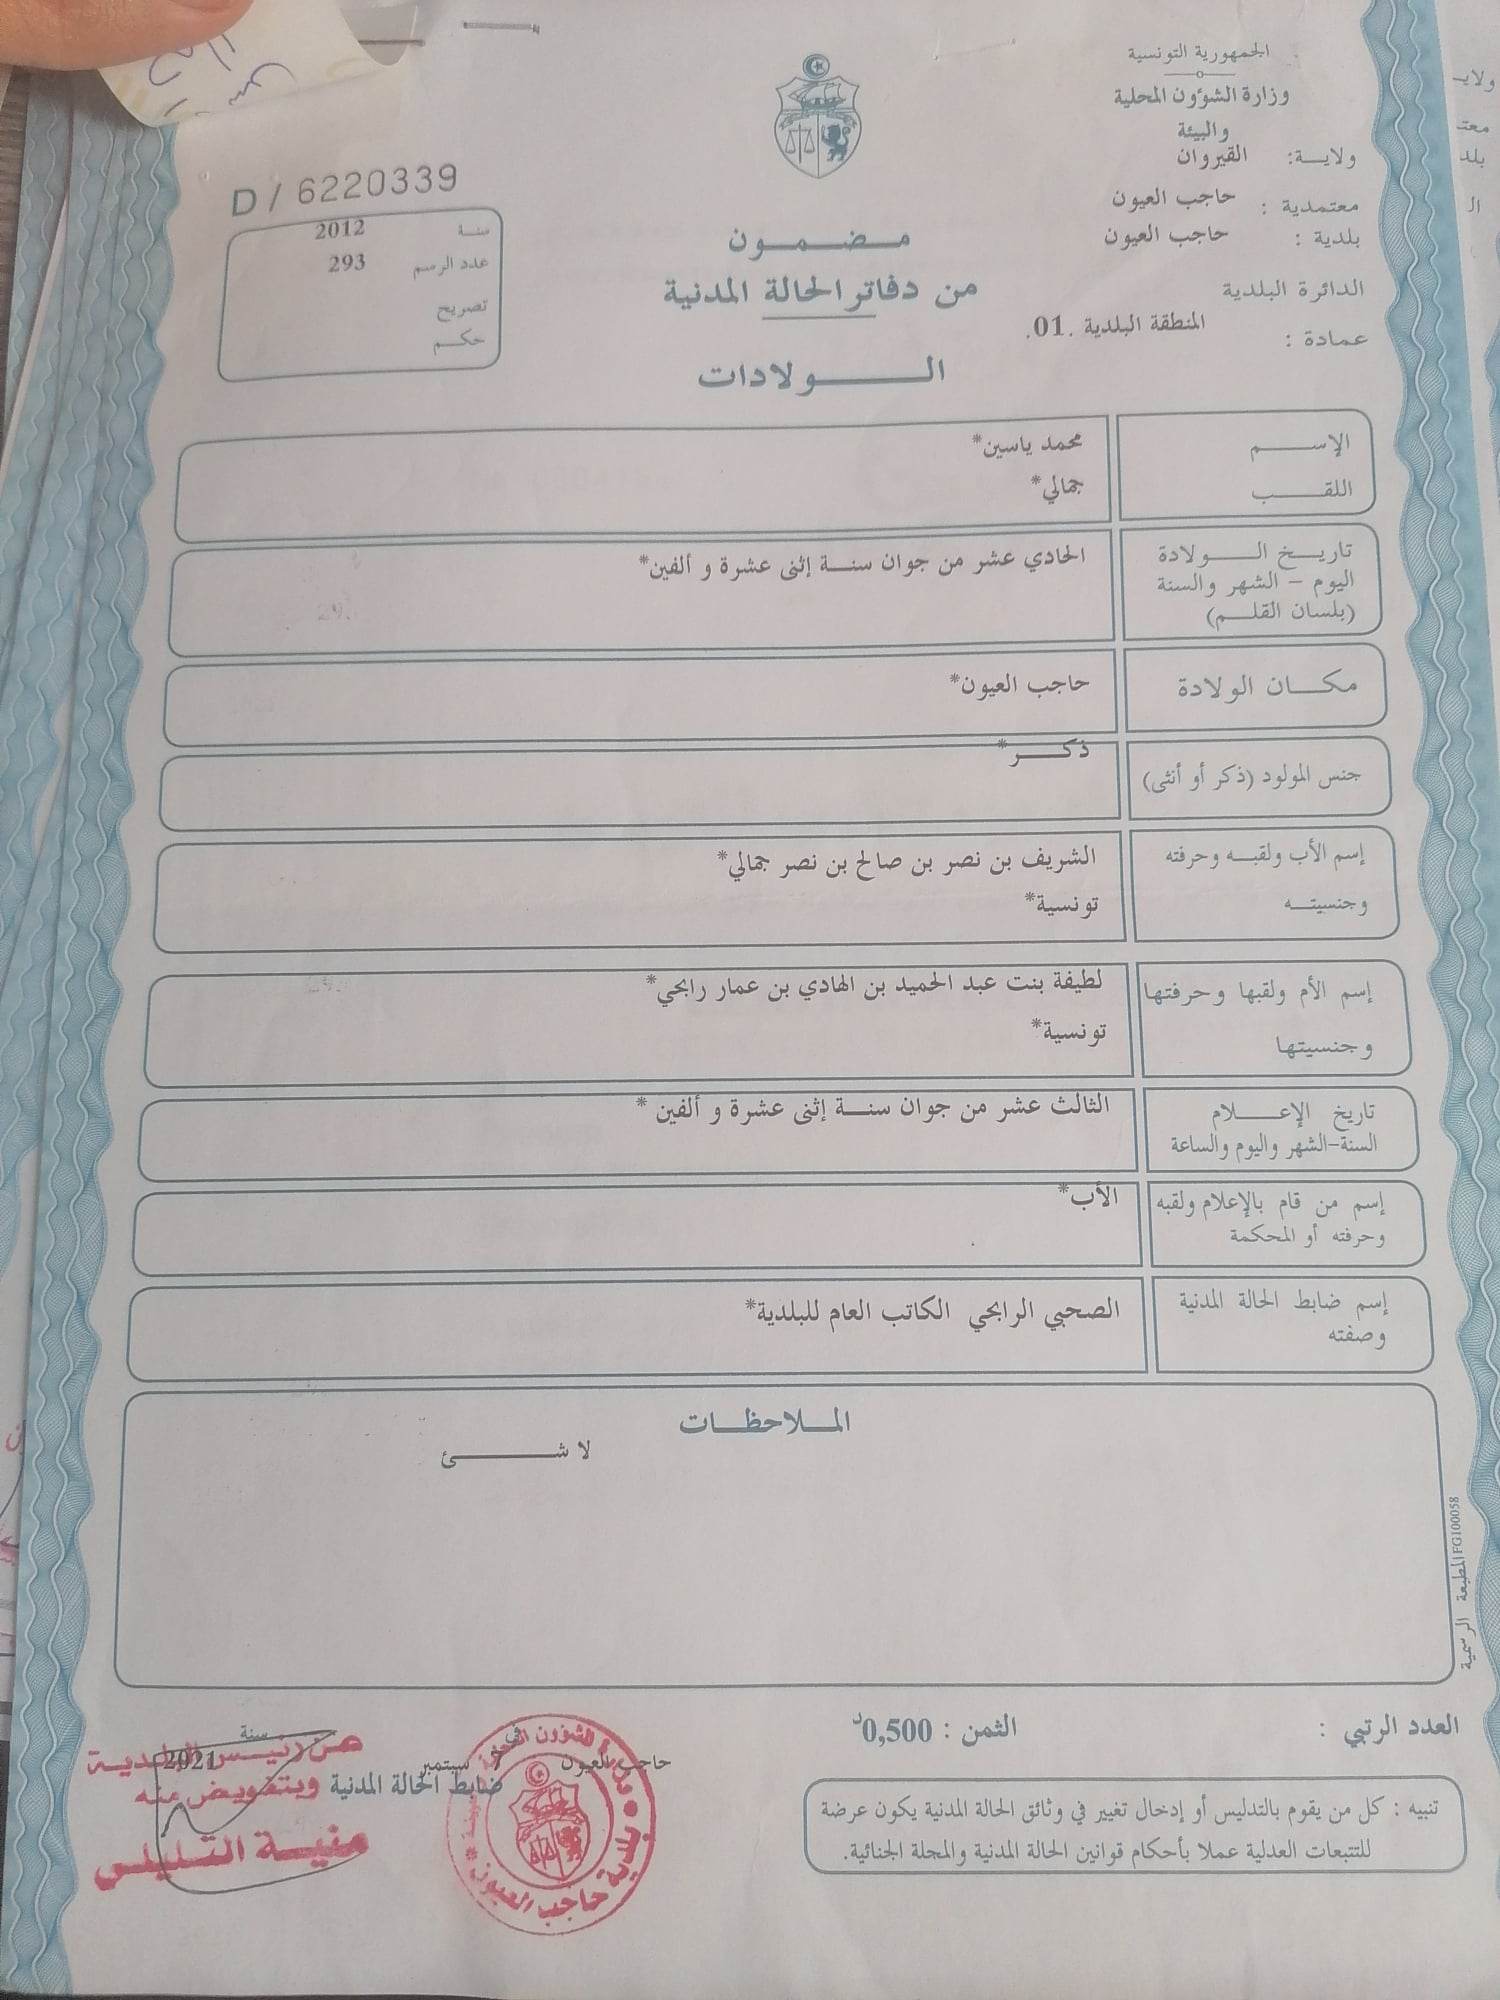 الجمهورية التونسية
وزارة الشؤون المحلية
والبيئة
ولايـــة: القيروان
معتمدية : حاجب العيون
بلدية : حاجب العيون
الدائرة البلدية
المنطقة البلدية .01.
عمادة :
D / 6220339
سنـة 2012
عدد الرسم 293
تصريح
حكـــم
مــضــمــون
من دفاتر الحالة المدنية
الــــولادات
الإســــــم محمد ياسين*
اللقــــــب جمالي*
تاريـــخ الــــولادة الحادي عشر من جوان سنــة إثنى عشرة و ألفين*
اليوم – الشهر والسنة
(بلسان القلـــم)
مكـــان الولادة حاجب العيون*
جنس المولود (ذكر أو أنثى) ذكـــر*
إسم الأب ولقبــه وحرفته الشريف بن نصر بن صالح بن نصر جمالي*
وجنسيتــه تونسية*
إسم الأم ولقبها وحرفتها لطيفة بنت عبد الحميد بن الهادي بن عمار رابحي*
وجنسيتها تونسية*
تاريخ الإعـــلام الثالث عشر من جوان سنــة إثنى عشرة و ألفين *
السنة–الشهر واليوم والساعة
إسم من قام بالإعلام ولقبه الأب*
وحرفته أو المحكمة
إسم ضابط الحالة المدنية الصحبي الرابحي الكاتب العام للبلدية*
وصفته
المــلاحظــات
لا شـــــــئ
المطبعة الرسمية FG100058
العدد الرتبي : الثمن : 0,500د
حاجب العيون في 7 سبتمبر سنة 2021
ضابط الحالة المدنية
عن رئيس البلدية
وبتفويض منه
منية التليلي
بلدية حاجب العيون
تنبيه : كل من يقوم بالتدليس أو إدخال تغيير في وثائق الحالة المدنية يكون عرضة
للتتبعات العدلية عملا بأحكام قوانين الحالة المدنية والمجلة الجنائية.